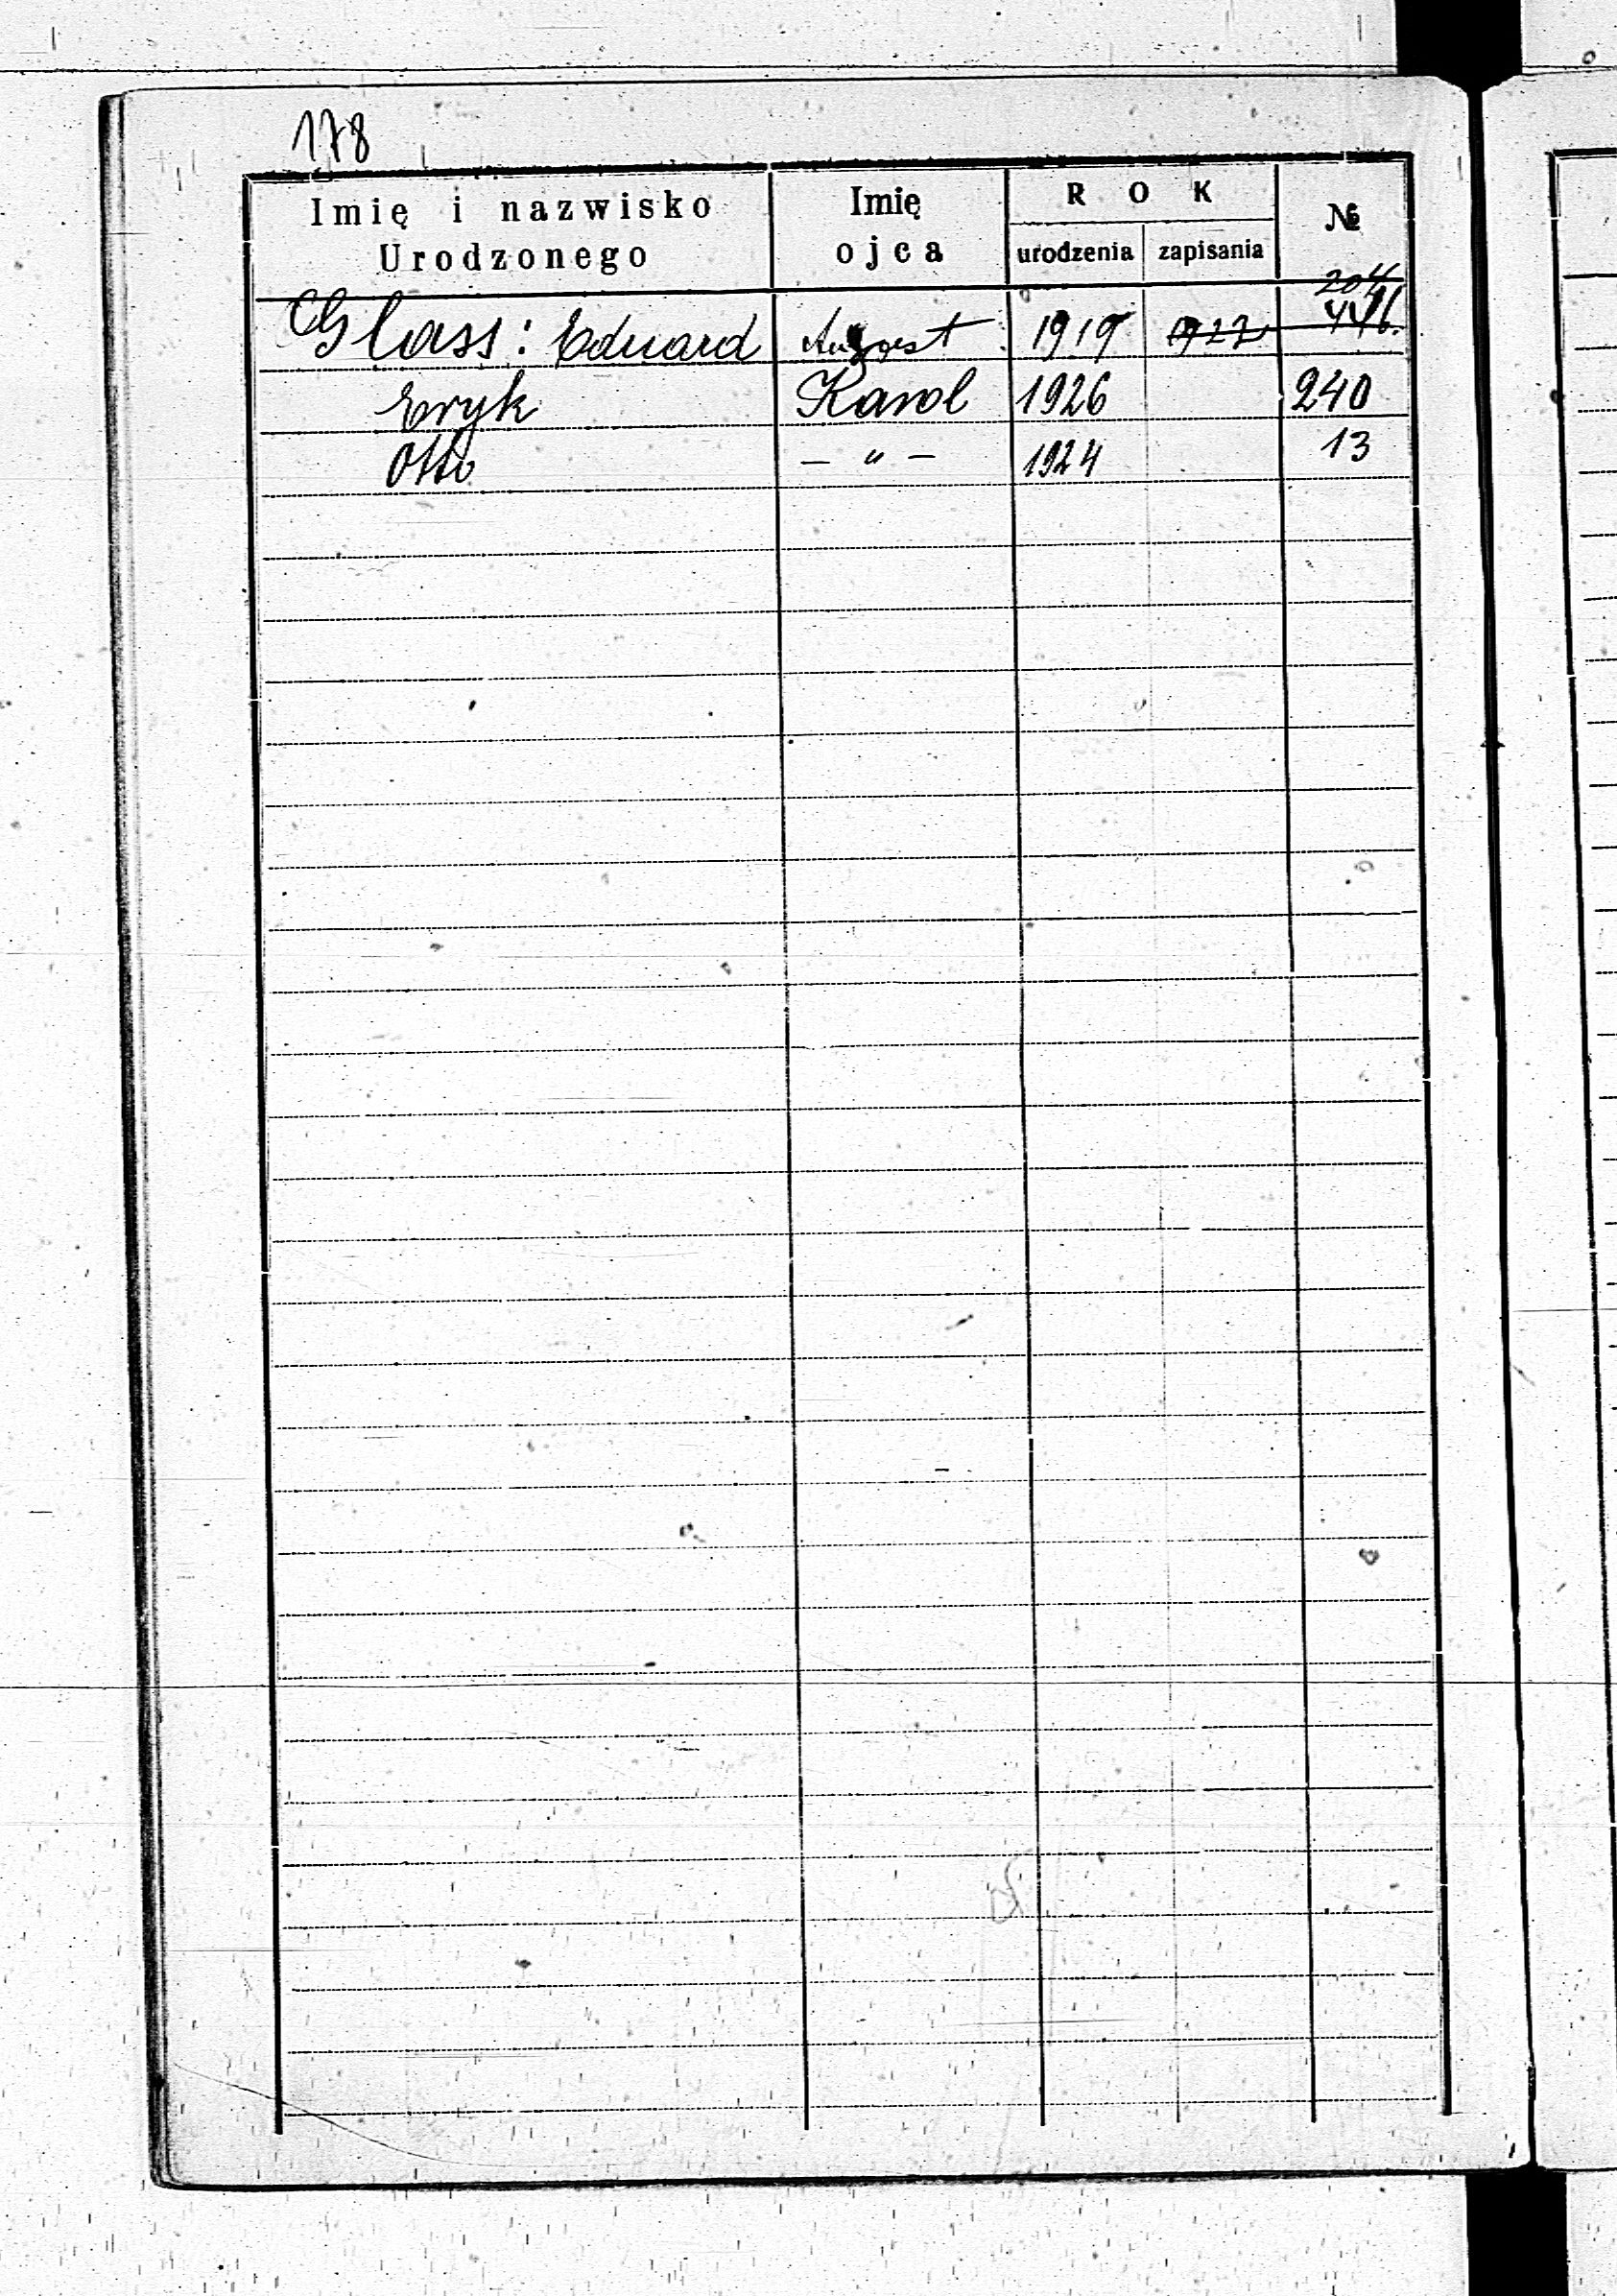 178
Imię i nazwisko Urodzonego
Imię ojca
ROK
urodzenia zapisania
№
204
Glass: Eduard August 1919 1927 446.
Eryk Karol 1926 240
Otto — " — 1924 13